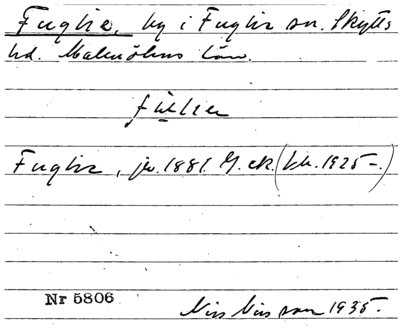 Fuglie, by i Fuglie sn. Skytts
hd. Malmöhus län.
Fuglie, jv. 1881. G. ek. (bil. 1925–)
Nr 5806 Nils Nilsson 1935.